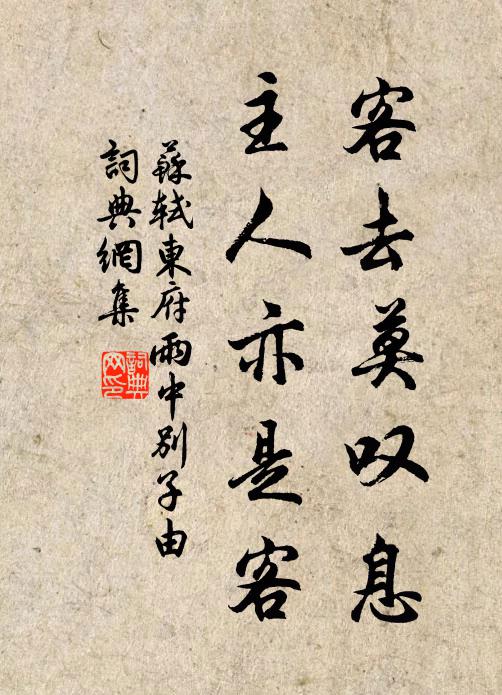 客去莫叹息
主人亦是客
蘇軾東府雨中別子由
詞典網集
詞典網印